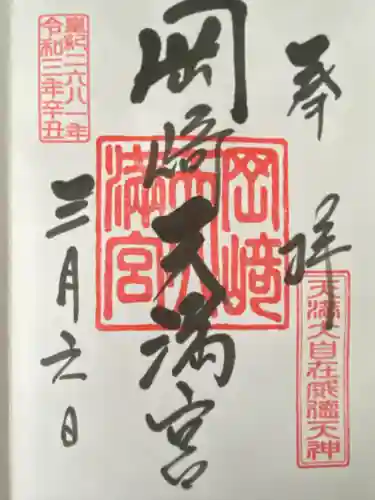 奉拝
天満大自在威徳天神
岡崎天満宮
岡﨑天満宮
皇紀二六八一年
令和三年辛丑
三月六日